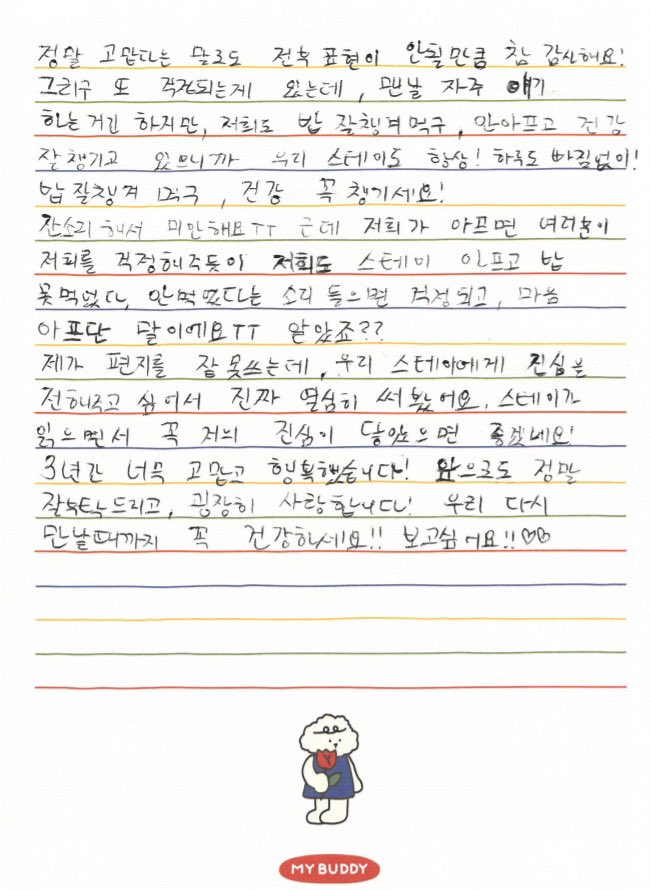 정말 고맙다는 말로도 전혀 표현이 안될만큼 참 감사해요!
그리구 또 걱정되는게 있는데, 맨날 자주 얘기
하는거긴 하지만, 저희도 밥 잘챙겨먹구, 안아프고 건강
잘챙기고 있으니까 우리 스테이도 항상! 하루도 빠짐없이!
밥 잘챙겨 먹구, 건강 꼭 챙기세요!
잔소리해서 미안해요ㅠㅠ 근데 저희가 아프면 여러분이
저희를 걱정해주듯이 저희도 스테이 아프고 밥
못먹었다, 안먹었다는 소리 들으면 걱정되고, 마음
아프단 말이에요ㅠㅠ 알았죠??
제가 편지를 잘 못쓰는데, 우리 스테이에게 진심을
전해주고 싶어서 진짜 열심히 써봤어요. 스테이가
읽으면서 꼭 저의 진심이 닿았으면 좋겠네요!
3년간 너무 고맙고 행복했습니다! 앞으로도 정말
잘부탁드리고, 굉장히 사랑합니다! 우리 다시
만날때까지 꼭 건강하세요!! 보고싶어요!!♡♡
MY BUDDY